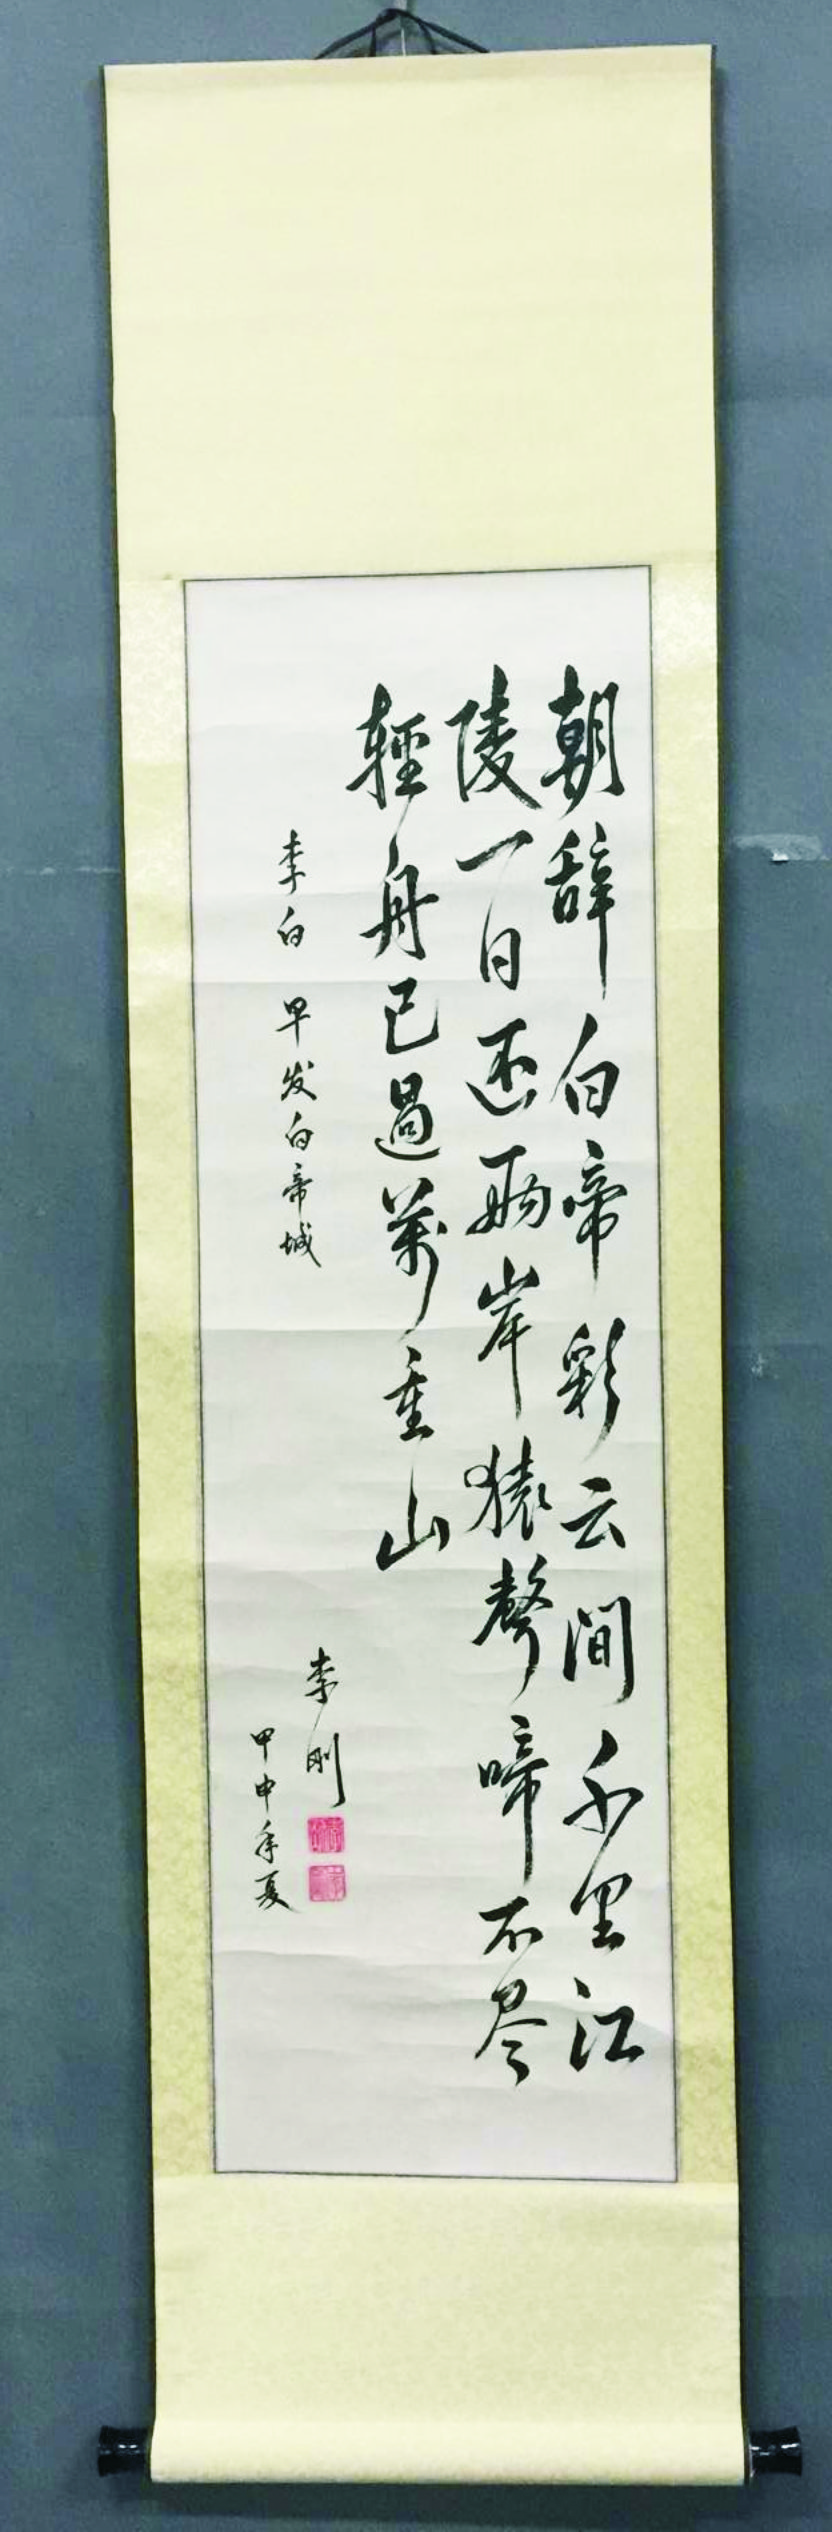 朝辞白帝彩云间千里江
陵一日还两岸猿聲啼不尽
輕舟已過萬重山
李白 早发白帝城
李刚
甲申年夏